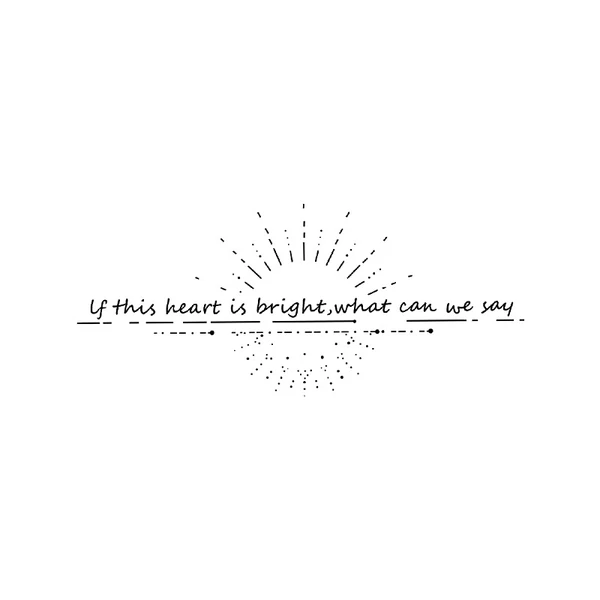 If this heart is bright,what can we say